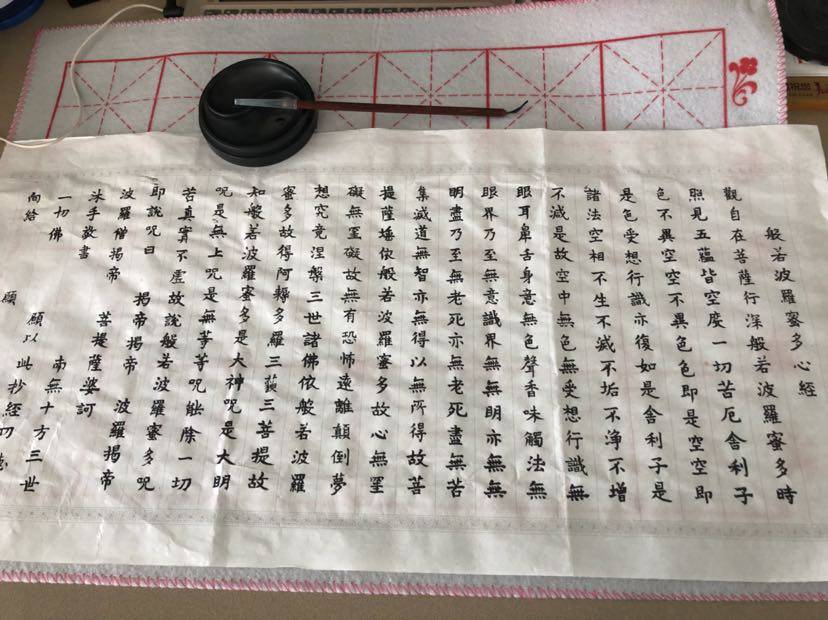 般若波羅蜜多心經
觀自在菩薩行深般若波羅蜜多時
照見五蘊皆空度一切苦厄舍利子
色不異空空不異色色即是空空即
是色受想行識亦復如是舍利子是
諸法空相不生不滅不垢不淨不增
不減是故空中無色無受想行識無
眼耳鼻舌身意無色聲香味觸法無
眼界乃至無意識界無無明亦無無
明盡乃至無老死亦無老死盡無苦
集滅道無智亦無得以無所得故菩
提薩埵依般若波羅蜜多故心無罣
礙無罣礙故無有恐怖遠離顛倒夢
想究竟涅槃三世諸佛依般若波羅
蜜多故得阿耨多羅三藐三菩提故
知般若波羅蜜多是大神呪是大明
呪是無上呪是無等等呪能除一切
苦真實不虛故說般若波羅蜜多呪
即說呪曰 揭帝揭帝 波羅揭帝
波羅僧揭帝 菩提薩婆訶
沐手敬書
一切佛 南無十方三世
向給 願以此抄經功德
願